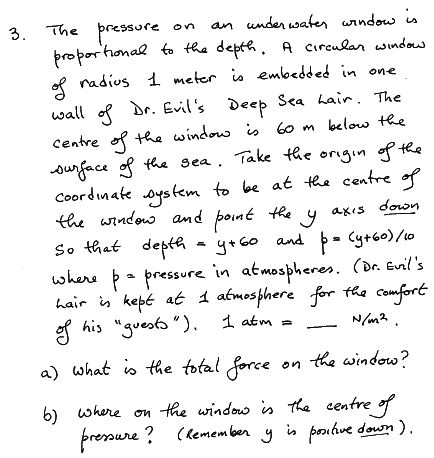 3. The pressure on an underwater window is
proportional to the depth. A circular window
of radius 1 meter is embedded in one
wall of Dr. Evil's Deep Sea Lair. The
centre of the window is 60 m below the
surface of the sea. Take the origin of the
coordinate system to be at the centre of
the window and point the y axis down
so that depth = y+60 and p = (y+60)/10
where p = pressure in atmospheres. (Dr. Evil's
Lair is kept at 1 atmosphere for the comfort
of his "guests"). 1 atm = ___ N/m².
a) what is the total force on the window?
b) where on the window is the centre of
pressure? (Remember y is positive down).